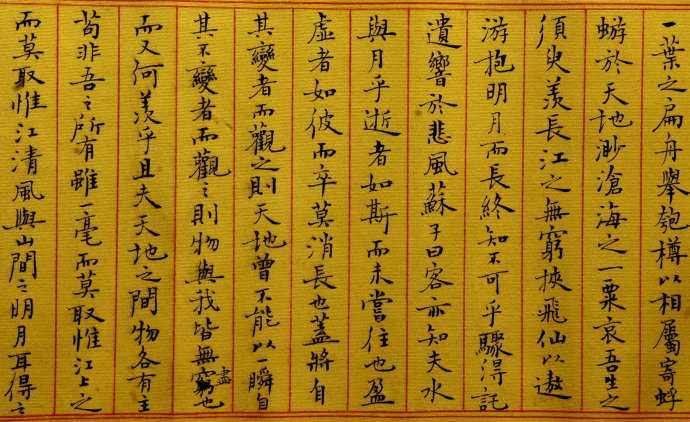 一葉之扁舟舉匏樽以相屬寄蜉
蝣於天地渺滄海之一粟哀吾生之
須臾羨長江之無窮挾飛仙以遨
游抱明月而長終知不可乎驟得託
遺響於悲風蘇子曰客亦知夫水
與月乎逝者如斯而未嘗往也盈
虛者如彼而卒莫消長也蓋將自
其變者而觀之則天地曾不能以一瞬自
其不變者而觀之則物與我皆無窮盡也
而又何羨乎且夫天地之間物各有主
苟非吾之所有雖一毫而莫取惟江上之
而莫取惟江清風與山間之明月耳得之